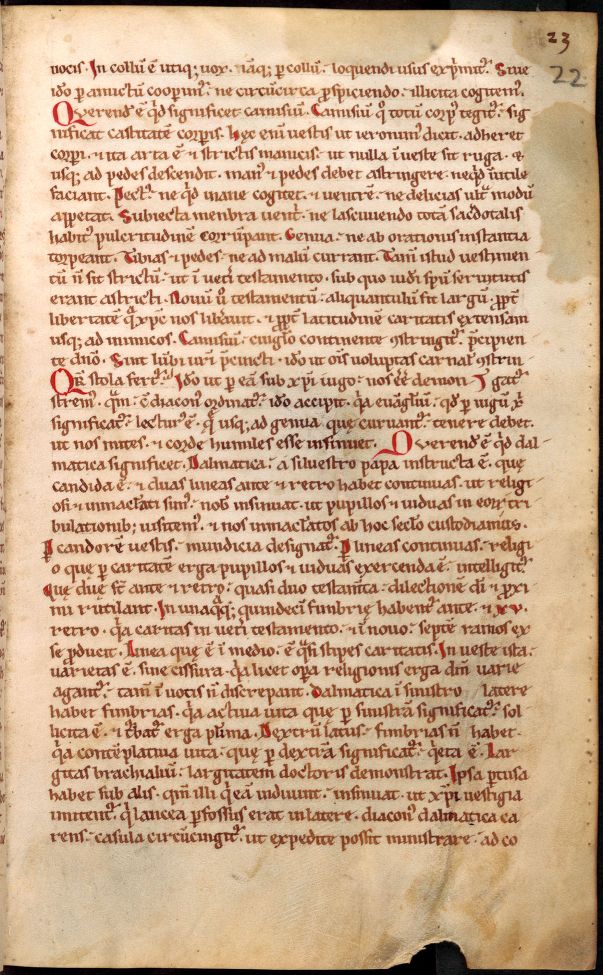 23
22
uocis. In collũ ẽ utiq; uox. nãq; p collũ. loquendi usus exp̃mit᷑. Siue
ido p amictũ cooperim᷑. ne circũcirca pspiciendo. illicita cogitem᷑.
Querend ẽ qd significet camisiũ. Camisiũ q̊ totũ corp᷑ tegit᷑. sig
nificat castitatẽ corpis. Hęc enĩ uestis ut ueronim᷑ dicit. adheret
corpi. ⁊ ita arta ẽ ⁊ strictis manicis. ut nulla ĩ ueste sit ruga. &
usq; ad pedes descendit. man᷑ ⁊ pedes debet astringere. neqd ĩutile
faciant. Pect᷑. ne qd inane cogitet. ⁊ uentrẽ. ne delicias ult᷑ modũ
appetat. Subiecta menbra uent᷑. ne lasciuiendo totã sacdotalis
habit᷑ pulcritudinẽ corrũpant. Genua. ne ab orationis instantia
torpeant. Tibias ⁊ pedes. ne ad malũ currant. Tam̃ istud uestimen
tũ ñ sit strictũ. ut ĩ uet̃i testamento. sub quo iudi spm̃ seruitutis
erant astricti. Nouũ ũ testamentũ. aliquantulũ sit largũ. ppt᷑
libertatẽ q̃ xpc nos libauit. ⁊ ppt᷑ latitudinẽ caritatis extensam
usq; ad inimicos. Camisiũ. cinglo continente 9stringit᷑. pcipien
te dño. Sint lũbi ur̃i pcincti. ido ut oĩs uoluptas carnal᷑ 9strin
Qr̃ stola fert᷑. Ido ut p eã sub xp̃i iugo. nos ẽẽ demon gat᷑.
strem᷑. qm̃. ẽ diacon᷑ ordinat᷑. ido accipit. q̃a euãgliũ. qd p iugũ xp̃i
significat᷑. lectur᷑ ẽ. q̃ usq; ad genua quę curuant᷑. tenere debet.
ut nos mites. ⁊ corde humiles esse insinuet. Querend ẽ qd dal-
matica significet. Dalmatica. a siluestro papa instructa ẽ. quę
candida ẽ. ⁊ duas lineas ante ⁊ retro habet continuas. ut religi-
osi ⁊ inmaclati sim᷑. nob᷑ insinuat. ut pupillos ⁊ uiduas in eor̃ tri-
bulationib; uisitem᷑. ⁊ nos inmaclatos ab hoc seclo custodiamus.
P candorẽ uestis. mundicia designat᷑. P lineas continuas. religi-
o que p caritatẽ erga pupillos ⁊ uiduas exercenda ẽ. intelligit᷑.
Quę duę st̃ ante ⁊ retro. quasi duo testam̃ta. dilectionẽ di ⁊ pxi-
mi rutilant. In unaq̃q; quindecĩ funbrię habent᷑ ante. ⁊ xv.
retro. q̃a caritas in uet̃i testamento. ⁊ ĩ nouo. septẽ ramos ex
se pducit. Linea quę ẽ ĩ medio. ẽ q̃si stipes caritatis. In ueste ista.
uarietas ẽ. sine cissura. q̃a licet opa religionis erga dm̃ uarie
agant᷑. tam̃ ĩ uotis ñ discrepant. Dalmatica ĩ sinistro latere
habet fimbrias. q̃a actiua uita quę p sinistrã significat᷑. sol
licita ẽ. ⁊ t᷑bat᷑ erga plima. Dextrũ latus. fimbrias ñ habet.
q̃a contẽplatiua uita. quę p dextrã significat᷑. q̃eta ẽ. Lar
gitas brachialiũ. largitatem doctoris demonstrat. Ipsa ptusa
habet sub alis. qm̃ illi q̃ eã induunt. insinuat. ut xp̃i uestigia
imitent᷑. q̃ lancea pfossus erat in latere. diacon᷑ dalmatica ca
rens. casula circũcingit᷑. ut expedite possit ministrare. ad co